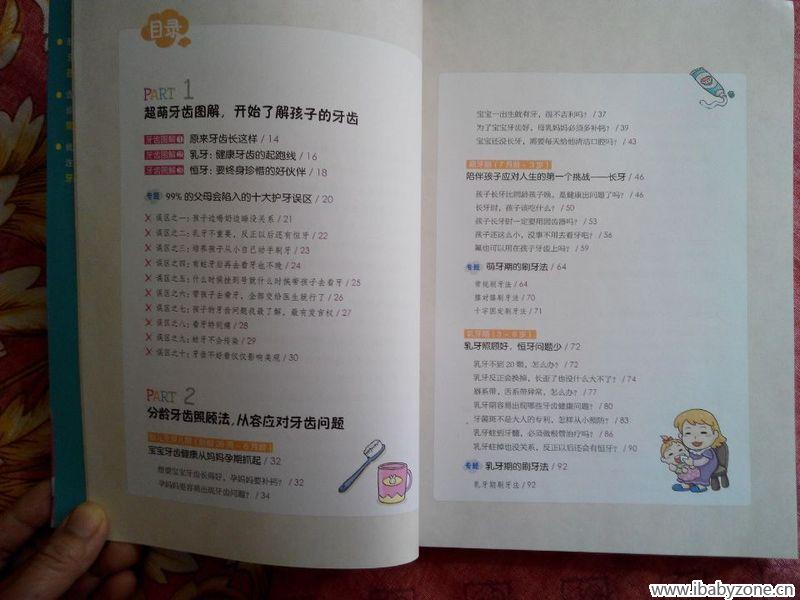 目录
PART 1
超萌牙齿图解，开始了解孩子的牙齿
牙齿图解1 原来牙齿长这样 / 14
牙齿图解2 乳牙：健康牙齿的起跑线 / 16
牙齿图解3 恒牙：要终身珍惜的好伙伴 / 18
专题 99%的父母会陷入的十大护牙误区 / 20
误区之一：孩子边喝奶边睡没关系 / 21
误区之二：乳牙不重要，反正以后还有恒牙 / 22
误区之三：培养孩子从小自己动手刷牙 / 23
误区之四：有蛀牙后再去看牙也不晚 / 24
误区之五：什么时候挂到号就什么时候带孩子去看牙 / 25
误区之六：带孩子去看牙，全部交给医生就行了 / 26
误区之七：孩子的牙齿问题我最了解，最有发言权 / 27
误区之八：看牙特别痛 / 28
误区之九：蛀牙不会传染 / 29
误区之十：牙齿不好看仅仅影响美观 / 30
PART 2
分龄牙齿照顾法，从容应对牙齿问题
宝宝牙齿健康从妈妈孕期抓起 / 32
想要宝宝牙齿长得好，孕妈妈要补钙？ / 32
孕妈妈更容易出现牙齿问题？ / 34
宝宝一出生就有牙，很不吉利吗？ / 37
为了宝宝牙齿好，母乳妈妈必须多补钙？ / 39
宝宝还没长牙，需要每天给他清洁口腔吗？ / 43
萌牙期（7月龄～3岁）
陪伴孩子应对人生的第一个挑战——长牙 / 46
孩子长牙比同龄孩子晚，是健康出问题了吗？ / 46
长牙时，孩子该吃什么？ / 50
孩子长牙时一定要用固齿器吗？ / 53
孩子还这么小，没事不用去看牙吧？ / 56
氟也可以用在孩子牙齿上吗？ / 59
专题 萌牙期的刷牙法 / 64
常规刷牙法 / 64
膝对膝刷牙法 / 70
十字固定刷牙法 / 71
乳牙照顾好，恒牙问题少 / 72
乳牙不到20颗，怎么办？ / 72
乳牙反正会换掉，长歪了也没什么大不了？ / 74
唇系带、舌系带异常，怎么办？ / 77
乳牙期容易出现哪些牙齿健康问题？ / 80
牙菌斑不是大人的专利，怎样从小预防？ / 83
乳牙蛀到牙髓，必须做根管治疗吗？ / 86
乳牙蛀掉也没关系，反正以后还会有恒牙？ / 90
专题 乳牙期的刷牙法 / 92
乳牙期刷牙法 / 92
www.ibabyzone.cn